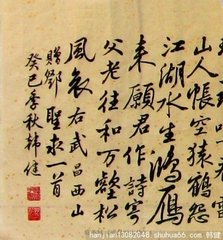 山人帳空猿鶴怨
江湖水生鴻雁
来願君作詩寄
父老往和万壑松
風哀右武昌西山
贈鄧聖求一首
癸巳季秋韩健
hanjian13082048 shuhua66.com 韩健